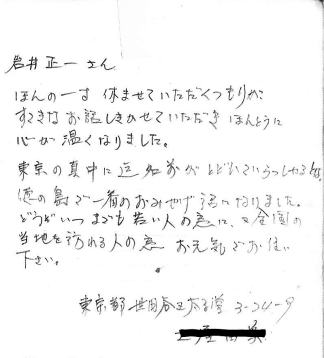 岩井正一さん
ほんの一寸休ませていただくつもりが
すてきなお話しきかせていただき ほんとうに
心が温くなりました。
東京の真中に
で一番のおみやげ話になりました。
どうぞいつまでも若い人の為に、又全国の
当地を訪れる人の為 お元気でお住い
下さい。
東京都世田谷区太子堂 3-24-9